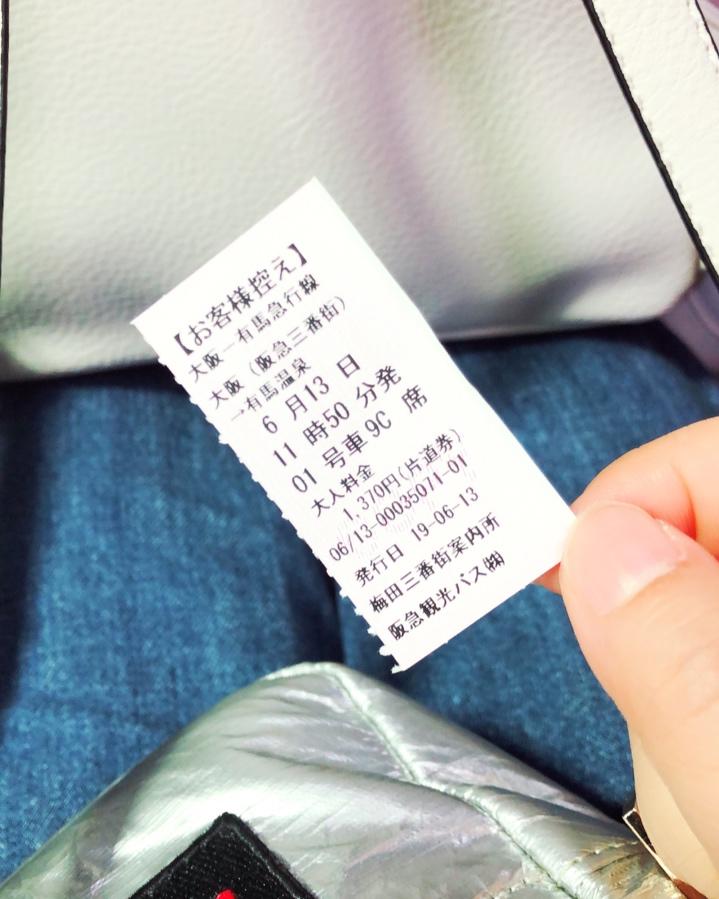 【お客様控え】
大阪ー有馬急行線
大阪（阪急三番街）
→有馬温泉
6 月13 日
11 時50 分発
01 号車 9C 席
大人料金
1,370円(片道券)
06/13-00035071-01
発行日 19-06-13
梅田三番街案内所
阪急観光バス㈱